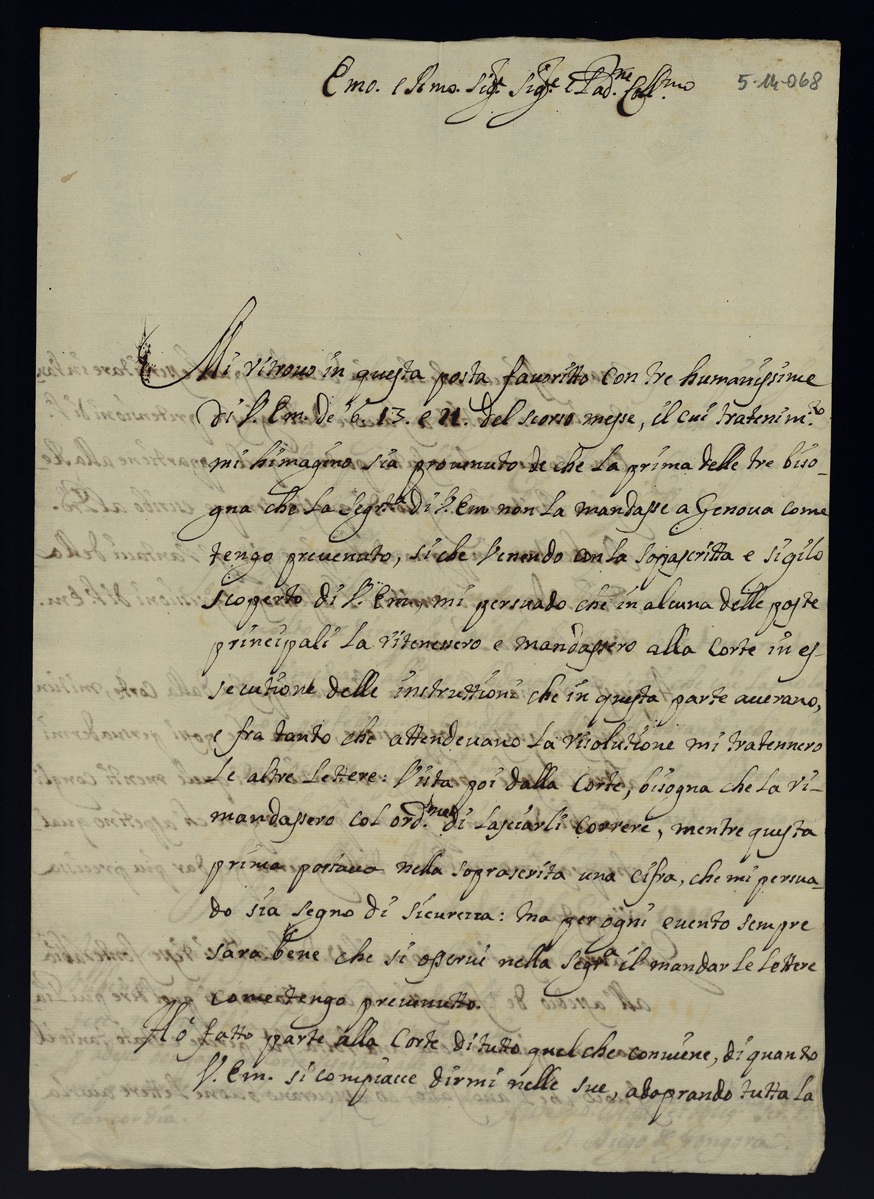 Emo. e Remo. Sigr. Sigre. e Padne. Collmo.
5-14-068
Mi ritrovo in questa posta favoritto con tre humanissime
di V. Em. de 6. 13. e 21. del scorso messe, il cui tratenimto.
mi himagino sia provenuto de che la prima delle tre biso-
gna che la Segrta. di V. Em non la mandasse a Genova come
tengo prevenuto, si che venendo con la soprascritta e sigilo
scoperto di V. Em., mi persuado che in alcuna delle poste
principali la ritenessero e mandassero alla Corte in es-
secutione delle instruttioni che in questa parte averano,
e fra tanto che attendevano la risolutione mi tratennero
le altre lettere: Vista poi dalla Corte, bisogna che la ri-
mandassero col ordne. di lasciarli correre, mentre questa
prima portava nella soprascrita una cifra, che mi persua-
do sia segno di sicurezza: ma per ogni evento sempre
sarà bene che si osservi nella Segria. il mandar le lettere
come tengo prevenutto.
Hò fatto parte alla Corte di tutto quel che conviene, di quanto
V. Em. si compiacce dirmi nelle sue, adoprando tutta la